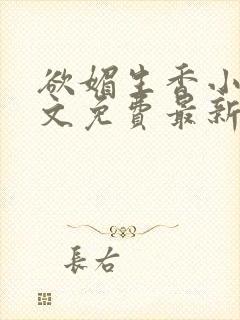 欲媚生香小
文免费最新
長右